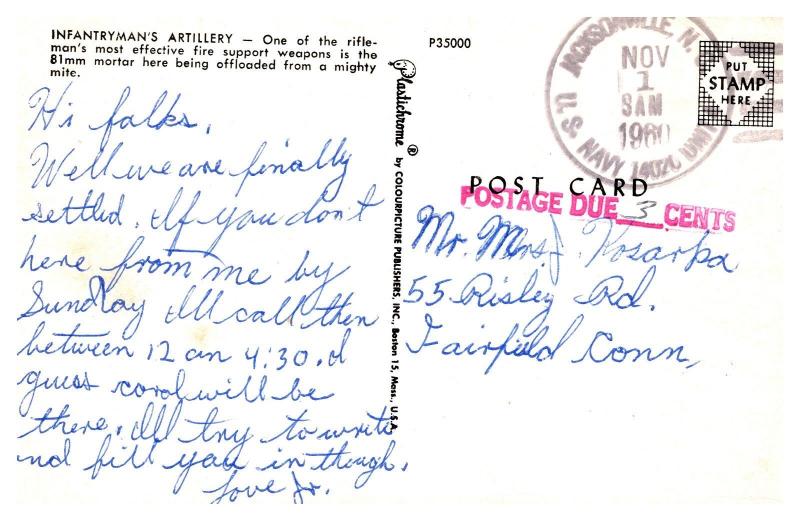 INFANTRYMAN'S ARTILLERY — One of the rifle-
man's most effective fire support weapons is the
81mm mortar here being offloaded from a mighty
mite.
Hi folks,
Well we are finally
settled. If you don't
here from me by
Sunday Ill call then
between 12 an 4:30. I
guess coral will be
there. Ill try to write
and fill you in though.
Love Jr.
Plastichrome ® by COLOURPICTURE PUBLISHERS, INC., Boston 15, Mass., U.S.A.
P35000
JACKSONVILLE, N. C.
NOV
1
8AM
1960
U. S. NAVY 14020 UNIT
PUT
STAMP
HERE
POST CARD
POSTAGE DUE 3 CENTS
Mr. Mrs J. Kosarka
55 Risley Rd.
Fairfield Conn,